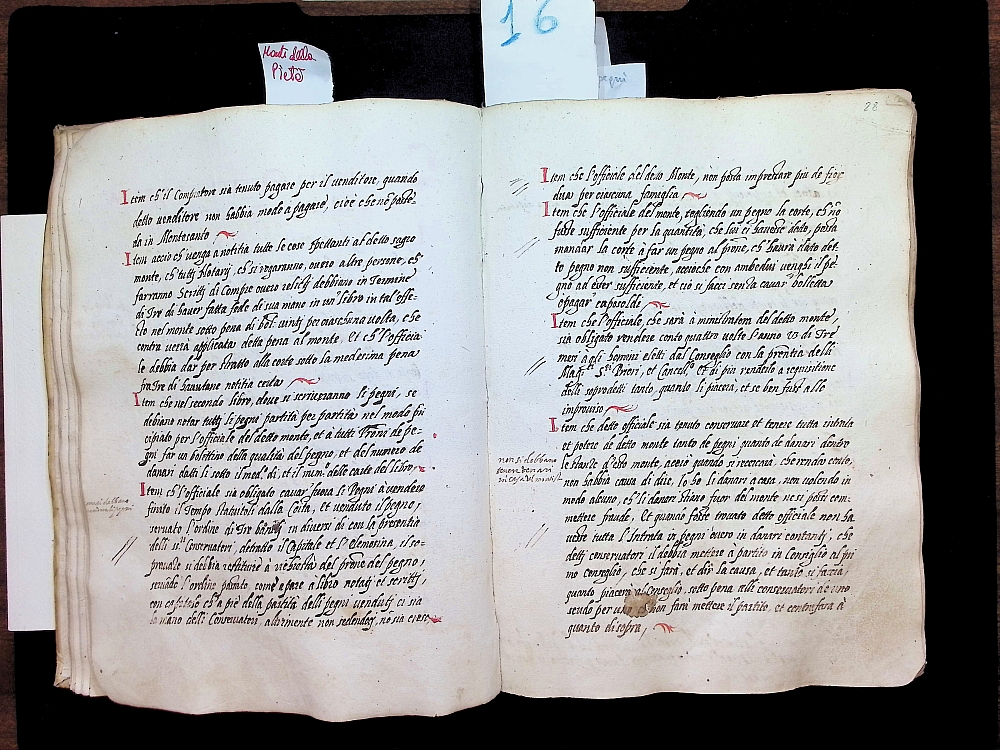 Monti della
Pietà
16
pegni
28
Item ch'il Compratore sia tenuto pagare per il venditore, quando
detto venditore non habbia modo a pagare, cioè che nè possè
da in Montesanto
Item acciò ch'venga a notitia tutte le cose spettanti al detto sagro
monte, ch'tutti Notarij, ch'si rogaranno, overo altre persone, ch'
farranno Scritti di Compre overo debbiano in Termine
di Tre dì haver fatta fede di sua mano in un' libro in tal effe-
cto nel monte sotto pena di bol. vinti per ciaschuna volta, che
contra verrà applicata della pena al monte, Et ch'l'officia
le debbia dar per stratto alla corte sotto la medesima pena
fra Tre dì havutane notitia certa
Item che nel secondo libro, dove si scriveranno li pegni, se
debiano notar tutti li pegni partita per partita nel modo pri
cipiato per l'officiale del detto monte, et à tutti Proni de pe-
gni far un bolettino della qualità del pegno, et del numero de
danari datti li sotto il med.º dì, et il num.º delle carte del libro,
Item ch'l'officiale sia obligato cavar' fuora li Pegni à vendere
finito il Tempo Statutoli dalla Corte, et venduto il pegno,
servato l'ordine di Tre bandi in diversi dì con la presentia
delli si.ri Conservatori, detratto il Capitale et l'Elemosina, il so-
provale si debbia restituire à richiesta del prone del pegno,
servato l'ordine passato come appare a libro notatj et scrittj,
con ch'a piè della partita delli pegni vendutj ci sia
la mano delli Conservatori, altrimente non
Item che l'officiale del detto Monte, non possa imprestare più de fior
duoi per ciascuna famiglia
Item che l'officiale del monte, togliendo un pegno la corte, ch'nō
fosse sufficiente per la quantità, che lui ci havesse dato, possa
mandar la corte à far un pegno al prone, ch'haverà dato det-
to pegno non sufficiente, acciochè con ambedui venghi il pe-
gno ad esser sufficiente, et ciò si facci senza cavar' bolletta
o pagar' caposoldi
Item che l'officiale, che sarà à ministratore del detto monte,
sia obligato rendere conto quattro volte l'anno di Tre
mesi à gli homini eletti dal Conseglio con la prentia delli
Mag.ci S.ri Priori, et Concell.e et di più renderlo a requisitione
delli sopredetti tanto, quanto li piacerà, et se ben fusse alle
improviso
Item che detto officiale sia tenuto conservare et tenere tutta intrata
et potere de detto monte tanto de pegni quanto de danari dentro
le stanze d'esso monte, acciò quando si recercarà, che rendi conto,
non habbia causa di dire, Io ho li danari a casa, non volendo in
modo alcuno, ch'li danari stiano fuor del monte ne si possi com-
mettere fraude, Et quando fosse trovato detto officiale non ha
vere tutta l'Intrata in pegni overo in danari contantj, che
detti conservatori il debbia mettere a partito in Consiglio al pri
mo conseglio, che si farà, et dir la causa, et tanto si faccia,
quanto piacerà al Conseglio, sotto pena alli conservatori de uno
scudo per uno non farà mettere il partito, et contrafarà à
quanto di sopra,
non si debbano
tenere denari
in casa